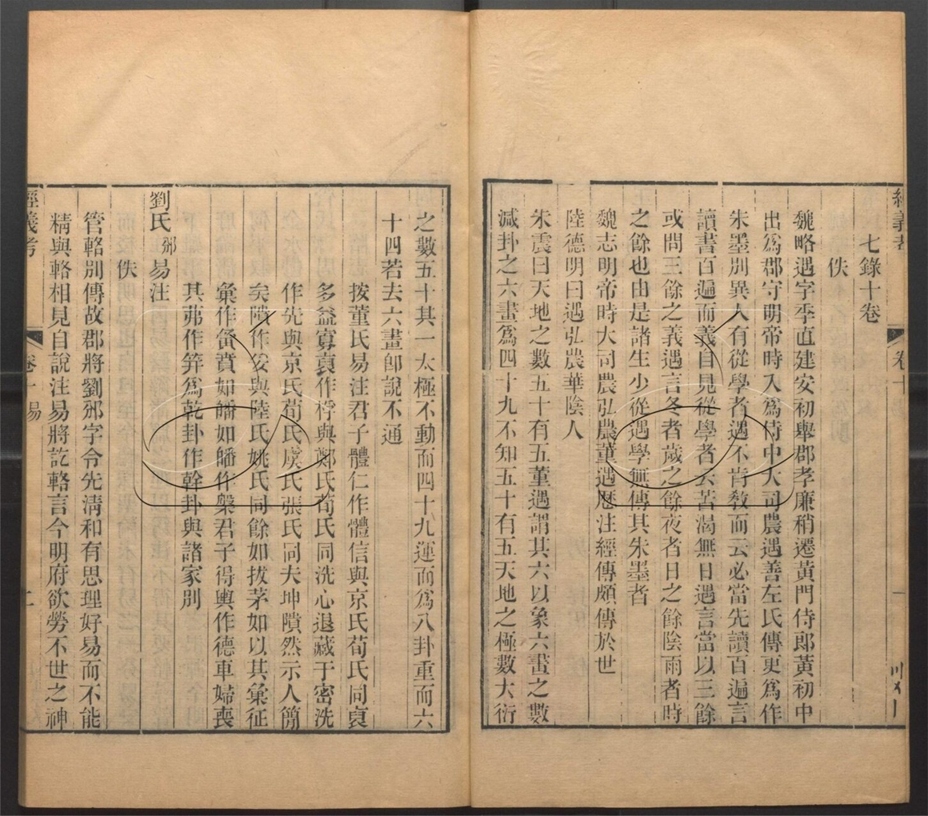 七錄十卷
佚
魏略遇字季直建安初舉郡孝廉稍遷黃門侍郎黃初中
出爲郡守明帝時入爲侍中大司農遇善左氏傳更爲作
朱墨別異人有從學者遇不肯教而云必當先讀百遍言
讀書百遍而義自見從學者云苦渴無日遇言當以三餘
或問三餘之義遇言冬者歲之餘夜者日之餘陰雨者時
之餘也由是諸生少從遇學無傳其朱墨者
魏志明帝時大司農弘農董遇歷注經傳頗傳於世
陸德明曰遇弘農華陰人
朱震曰天地之數五十有五董遇謂其六以象六畫之數
減卦之六畫爲四十九不知五十有五天地之極數大衍
之數五十其一太極不動而四十九運而爲八卦重而六
十四若去六畫卽說不通
按董氏易注君子體仁作體信與京氏荀氏同裒
多益寡裒作桴與鄭氏荀氏同洗心退藏于密洗
作先與京氏荀氏虞氏張氏同夫坤隤然示人簡
矣隤作妥與陸氏姚氏同餘如拔茅如以其彙征
彙作賁賁如皤如皤作槃君子得輿作德車婦喪
其茀作笄爲乾卦作幹卦與諸家別
劉氏邠易注
佚
管輅別傳故郡將劉邠字令先淸和有思理好易而不能
精與輅相見自說注易將訖輅言今明府欲勞不世之神
經義考 卷十 易 二